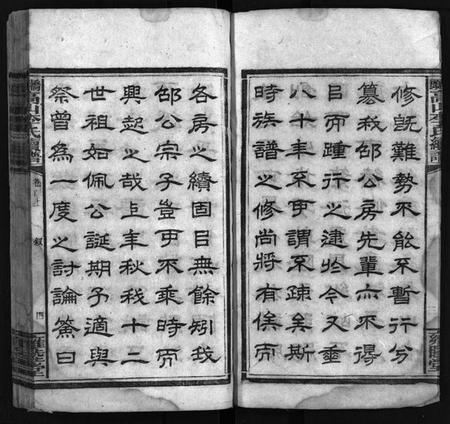 修既難勢不能不暫行分
纂我邵公房先輩亦不得
已而踵行之逮於今又垂
八十年不可謂不疎矣斯
時族譜之修尚將有俟而
各房之續固已無餘矧我
邵公宗子豈可不乘時而
興起之哉上年秋我十二
世祖如佩公誕期予適與
祭曾為一度之討論僉曰